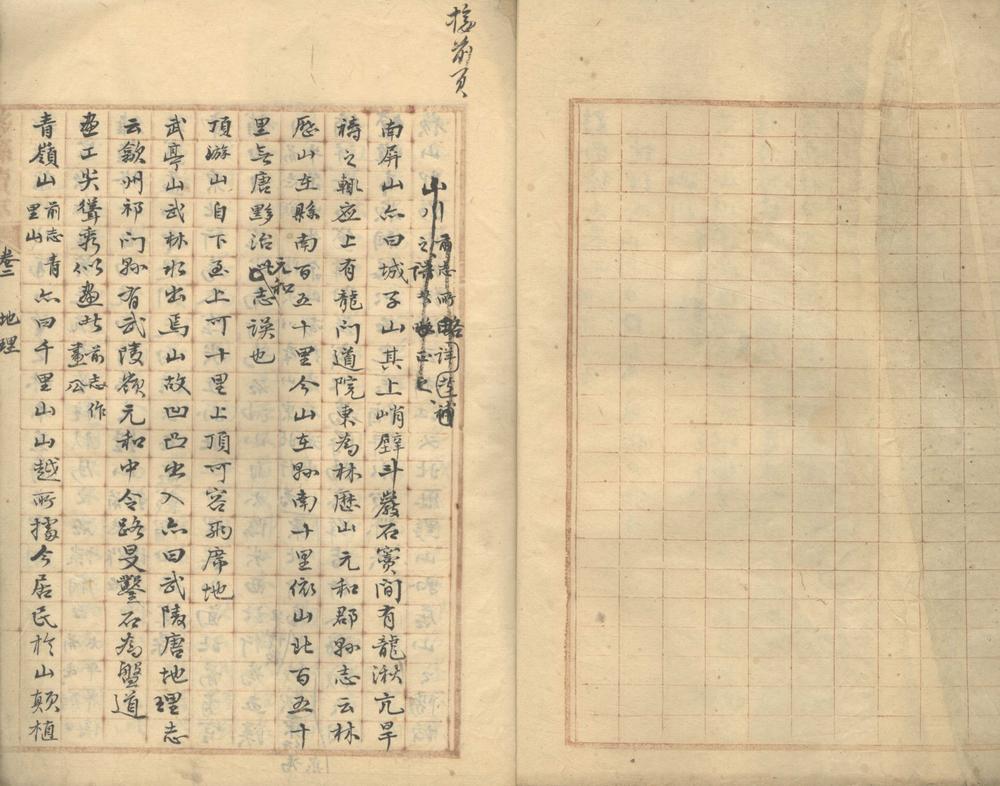 接前頁
山川
南屏山亦曰城子山其上峭壁斗巖石竇間有龍湫亢旱
禱之輒应上有龍门道院東為林歷山元和郡縣志云林
歷山在縣南百五十里今山在縣南十里依山北百五十
里无唐黟治元和志误也
頂游山自下至上可十里上頂可容兩席地
武亭山武林水出焉山故凹凸出入亦曰武陵唐地理志
云歙州祁门縣有武陵嶺元和中令路旻鑿石為盤道
画工尖聳秀似画此前志作畫公
青嶺山前志青里山亦曰千里山山越所據今居民於山巔植
卷二 地理